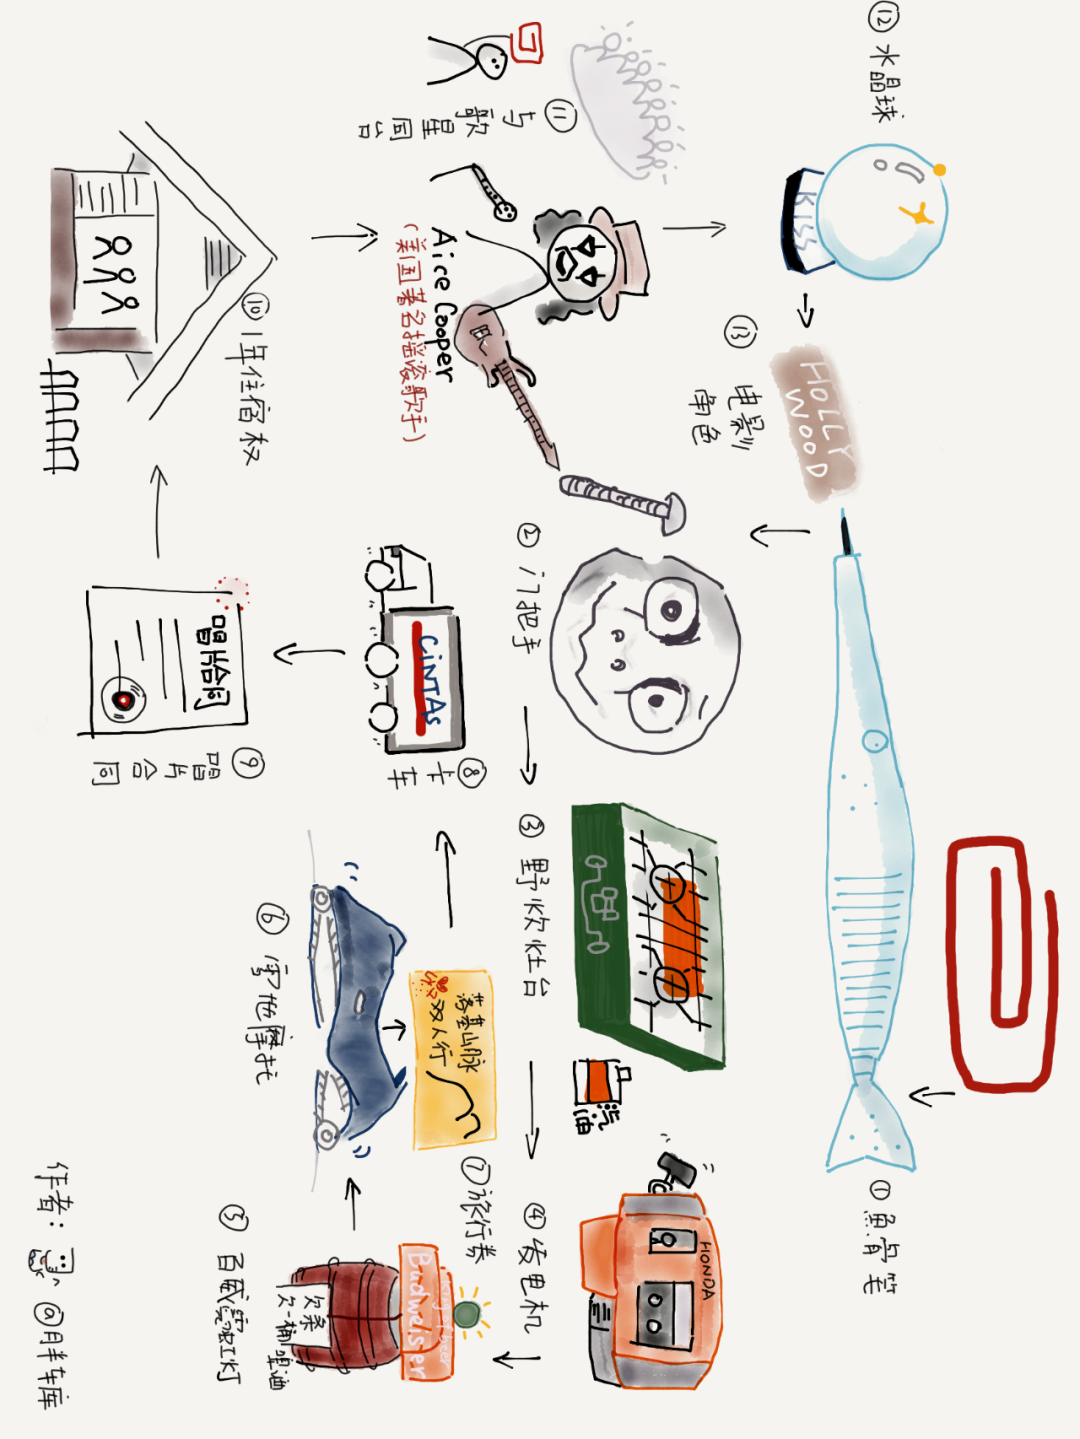 ①魚骨笔
②门把手
③野炊灶台
汽油
④发电机
HONDA
⑤百威霓虹灯
King of beer
Budweiser
欠条
欠一桶啤酒
⑥雪地摩托
⑦旅行券
落基山脉
双人行
⑧卡车
CiNTAs
⑨唱片合同
唱片合同
⑩1年住宿权
⑪与歌星同台
Aice Cooper
(美国著名摇滚歌手)
⑫水晶球
KISS
⑬电影角色
HOLLY
WOOD
作者:
@胖车库